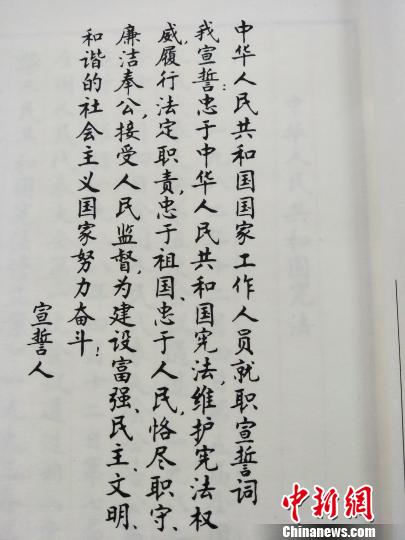 中华人民共和国国家工作人员就职宣誓词
我宣誓:忠于中华人民共和国宪法,维护宪法权
威,履行法定职责,忠于祖国、忠于人民,恪尽职守、
廉洁奉公,接受人民监督,为建设富强、民主、文明、
和谐的社会主义国家努力奋斗!
宣誓人
中新网
Chinanews.com